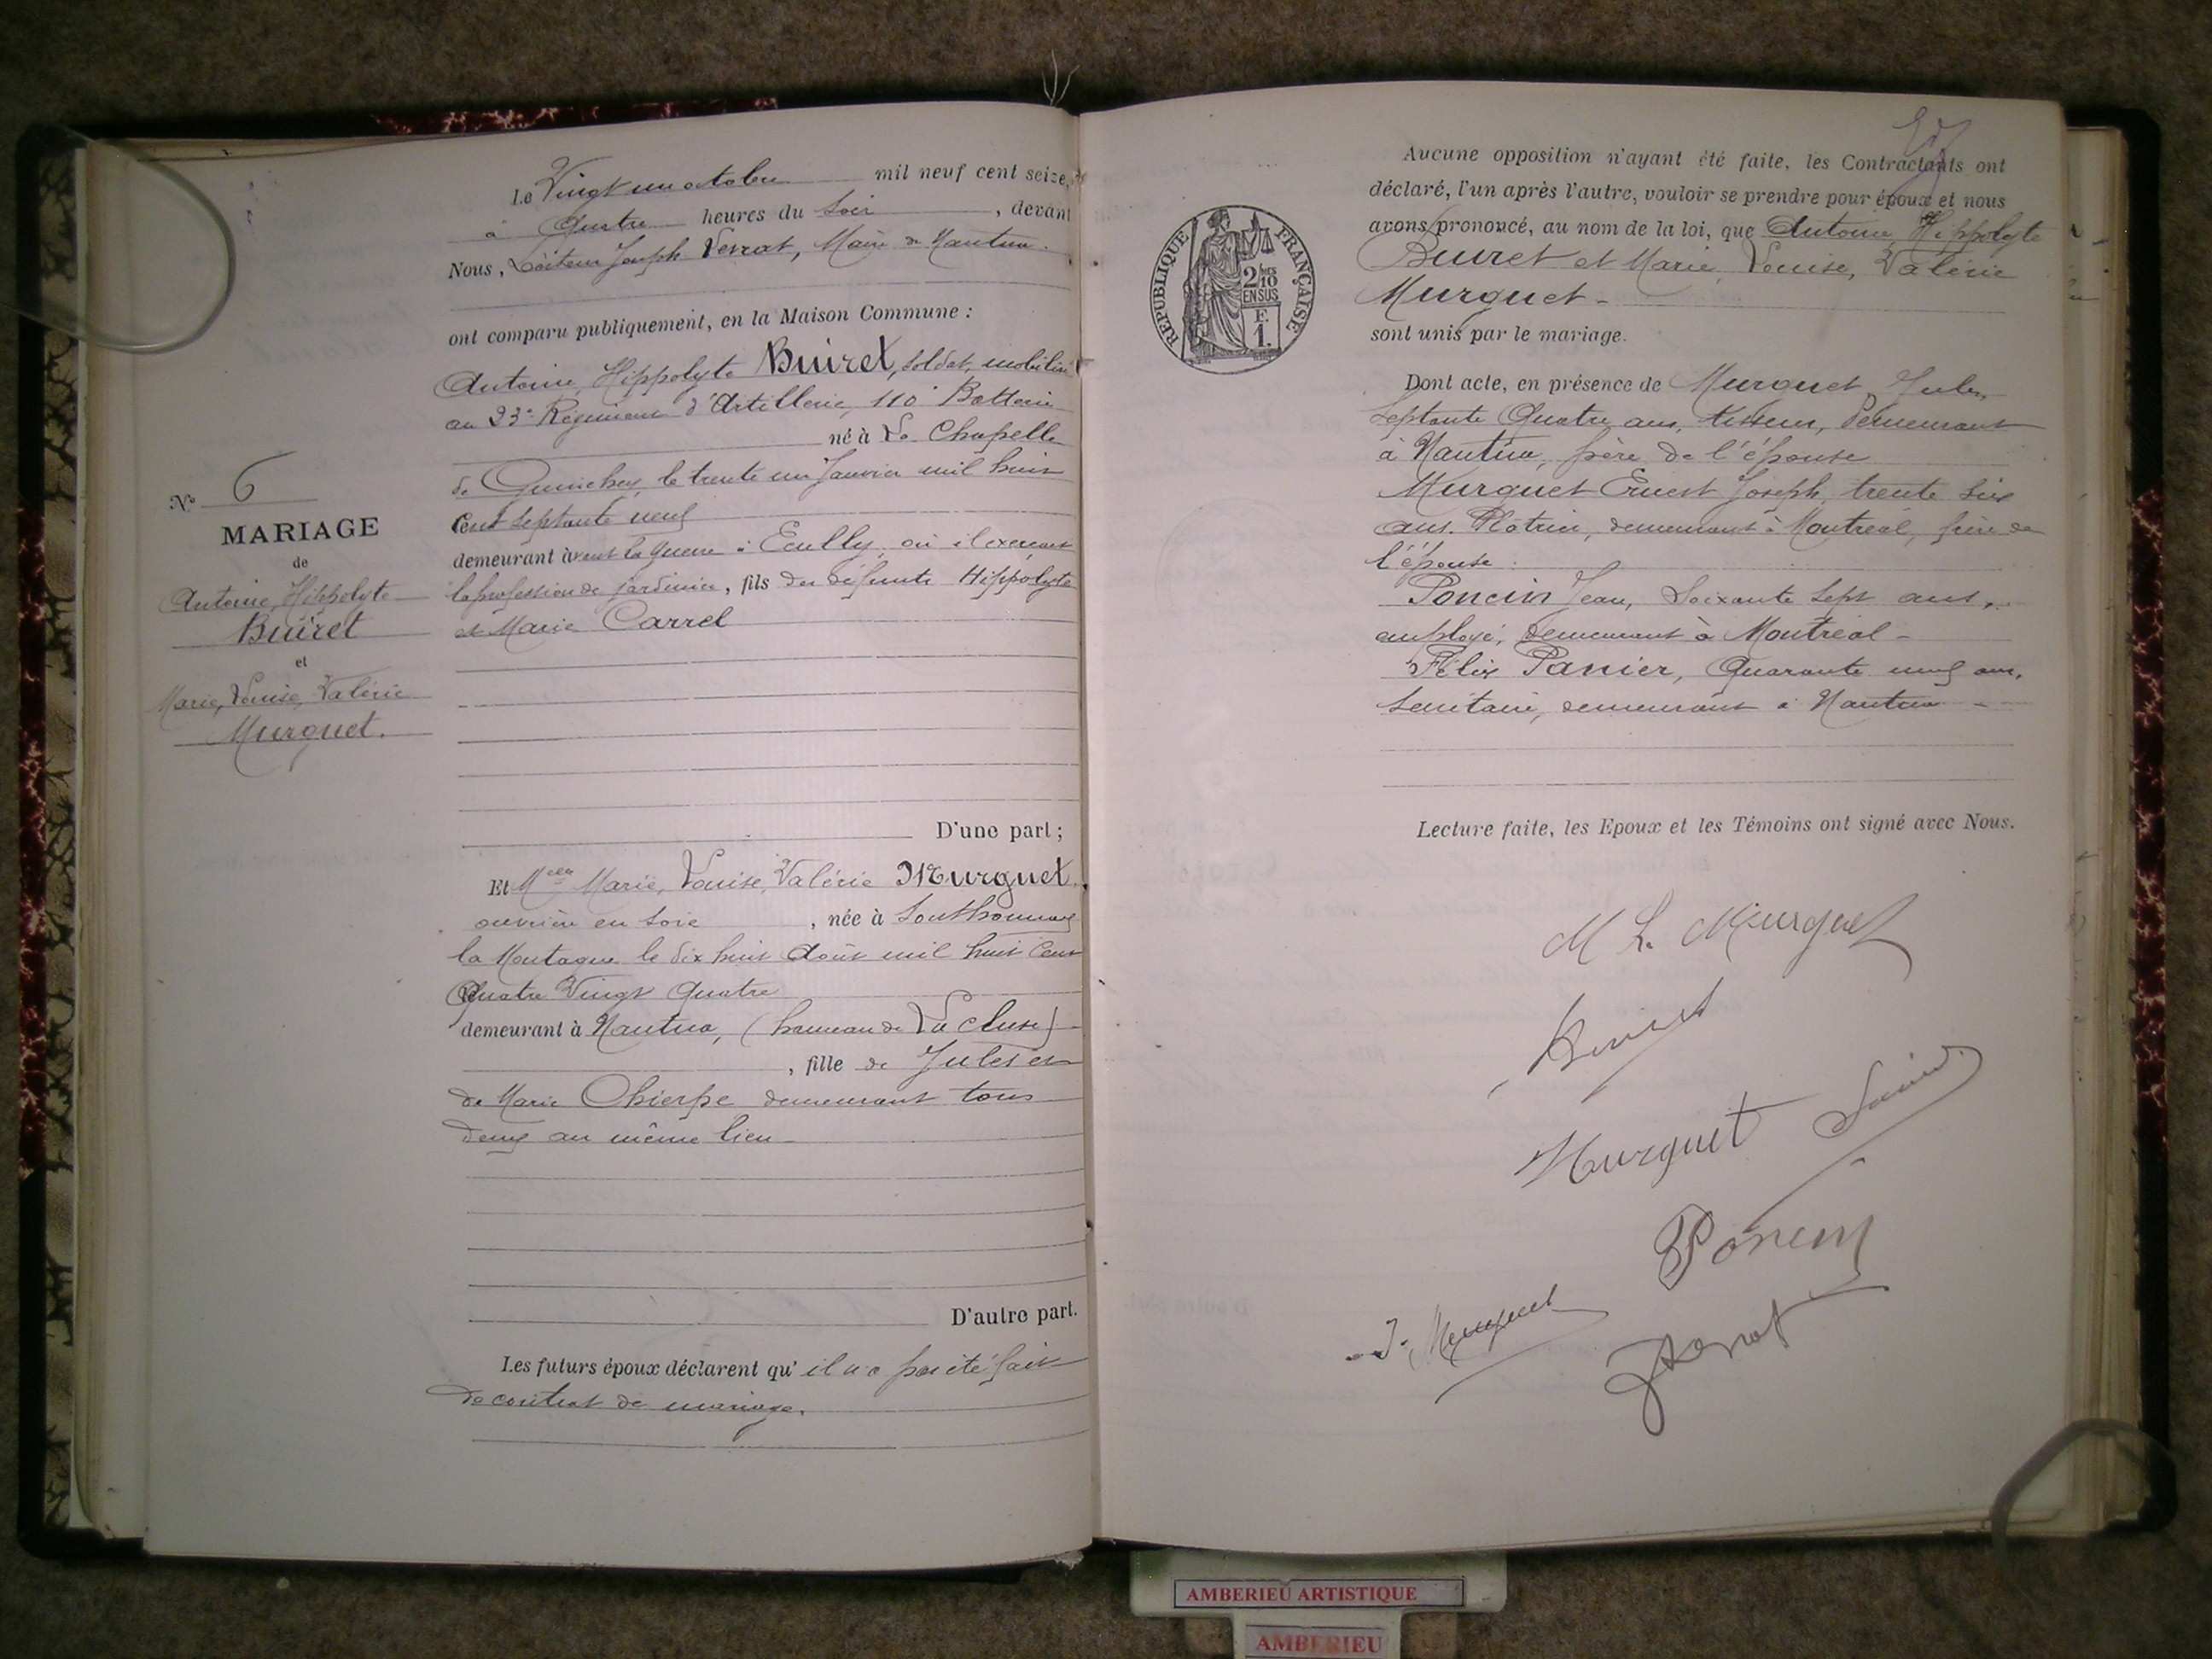 Le Vingt un octobre mil neuf cent seize,
à Quatre heures du Soir, devant
Nous, Joseph Verrat, Maire de Nantua.
ont comparu publiquement, en la Maison Commune :
Antoine, Hippolyte Buiret, soldat, mobilisé
au 23e Régiment d'Artillerie, 110e Batterie
né à La Chapelle
de Guinchay, le trente un Janvier mil huit
Cent Septante neuf
demeurant avant la guerre à Ecully, où il exerçait
la profession de jardinier, fils des défunts Hippolyte
et Marie Carrel
No 6
MARIAGE
de
Antoine, Hippolyte
Buiret
et
Marie, Louise, Valérie
Murguet.
D'une part ;
Et Melle Marie, Louise, Valérie Murguet
ouvrière en soie, née à Sonthonnax
la Montagne le dix huit Août mil huit Cent
Quatre Vingt Quatre
demeurant à Nantua, (hameau de La cluse)
, fille de Jules et
de Marie Chierpe demeurant tous
deux au même lieu
D'autre part.
Les futurs époux déclarent qu'il n'a pas été fait
de contrat de mariage.
Aucune opposition n'ayant été faite, les Contractants ont
déclaré, l'un après l'autre, vouloir se prendre pour époux et nous
avons prononcé, au nom de la loi, que Antoine, Hippolyte
Buiret et Marie, Louise, Valérie
Murguet -
sont unis par le mariage.
Dont acte, en présence de Murguet Jules,
Septante Quatre ans, tisseur, demeurant
à Nantua, père de l'épouse
Murguet Ernest Joseph, trente six
ans. Platrier, demeurant à Montréal, frère de
l'épouse.
Poncin Jean, Soixante Sept ans,
employé, demeurant à Montréal -
Félix Panier, Quarante neuf ans,
Secrétaire, demeurant à Nantua -
Lecture faite, les Epoux et les Témoins ont signé avec Nous.
M L. Murguet
Buiret
Murguet
Panier
Poncin
J. Murguet
Verrat
REPUBLIQUE FRANÇAISE
2/10
EN SUS
F.
1.
AMBERIEU ARTISTIQUE
AMBERIEU